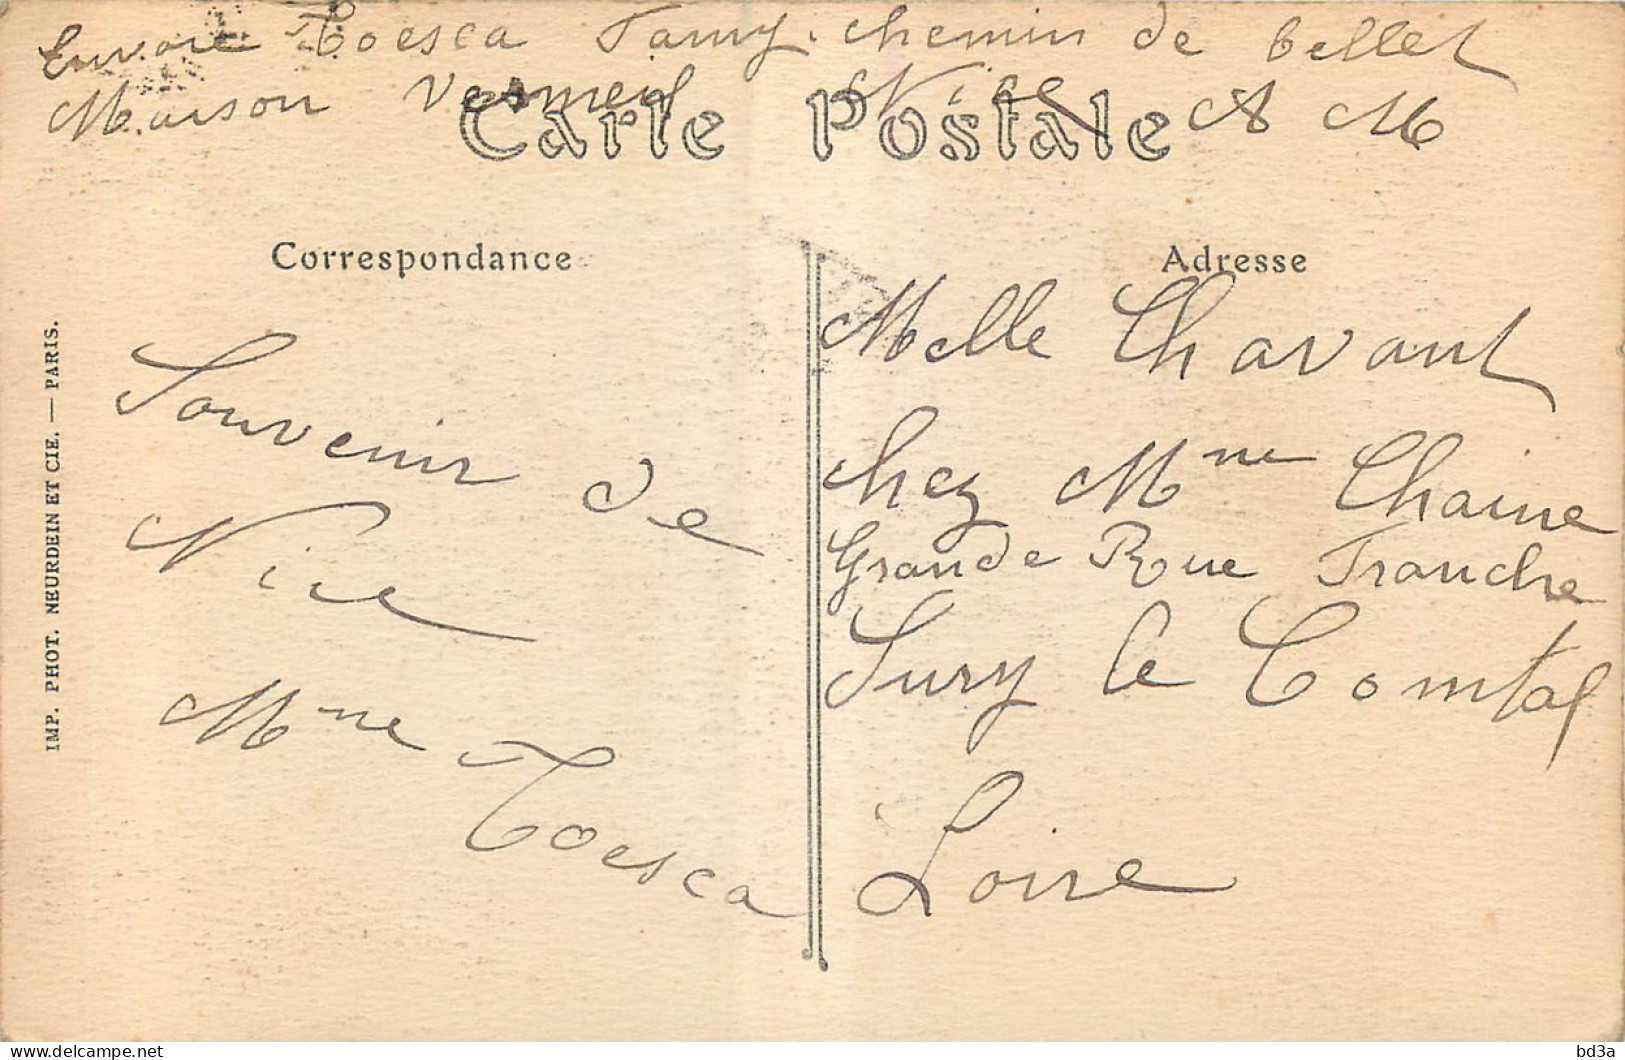 Envoie Toesca Famy. chemin de bellet
Maison Vermeil Nice A M
Carte Postale
Correspondance
Adresse
Souvenir de
Nice
Mme Toesca
Melle Chavant
chez Mme Chaine
Grande Rue Franche
Sury le Comtal
Loire
IMP. PHOT. NEURDEIN ET CIE. — PARIS.
delcampe.net
bd3a